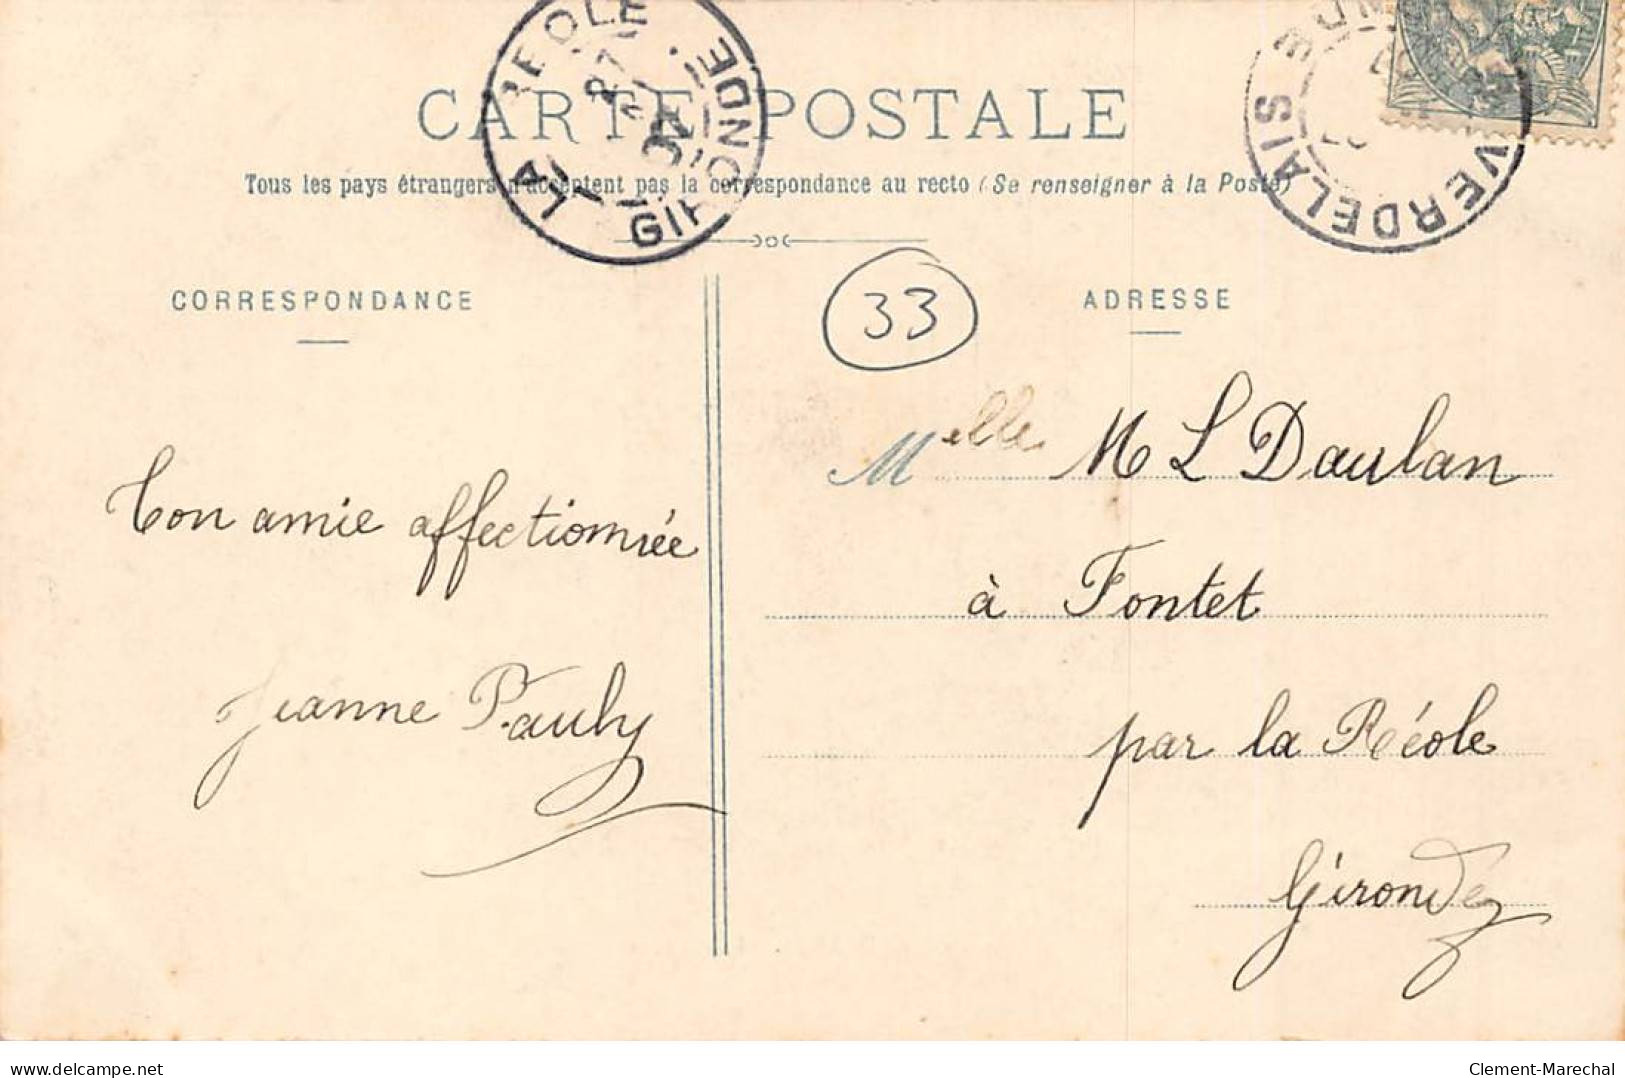 LA REOLE
27
GIRONDE
VERDELAIS
CARTE POSTALE
Tous les pays étrangers n'acceptent pas la correspondance au recto (Se renseigner à la Poste)
CORRESPONDANCE
33
ADRESSE
Melle M L Daulan
Ton amie affectionnée
à Fontet
Jeanne Pauly
par la Réole
Gironde
delcampe.net
Clement-Marechal